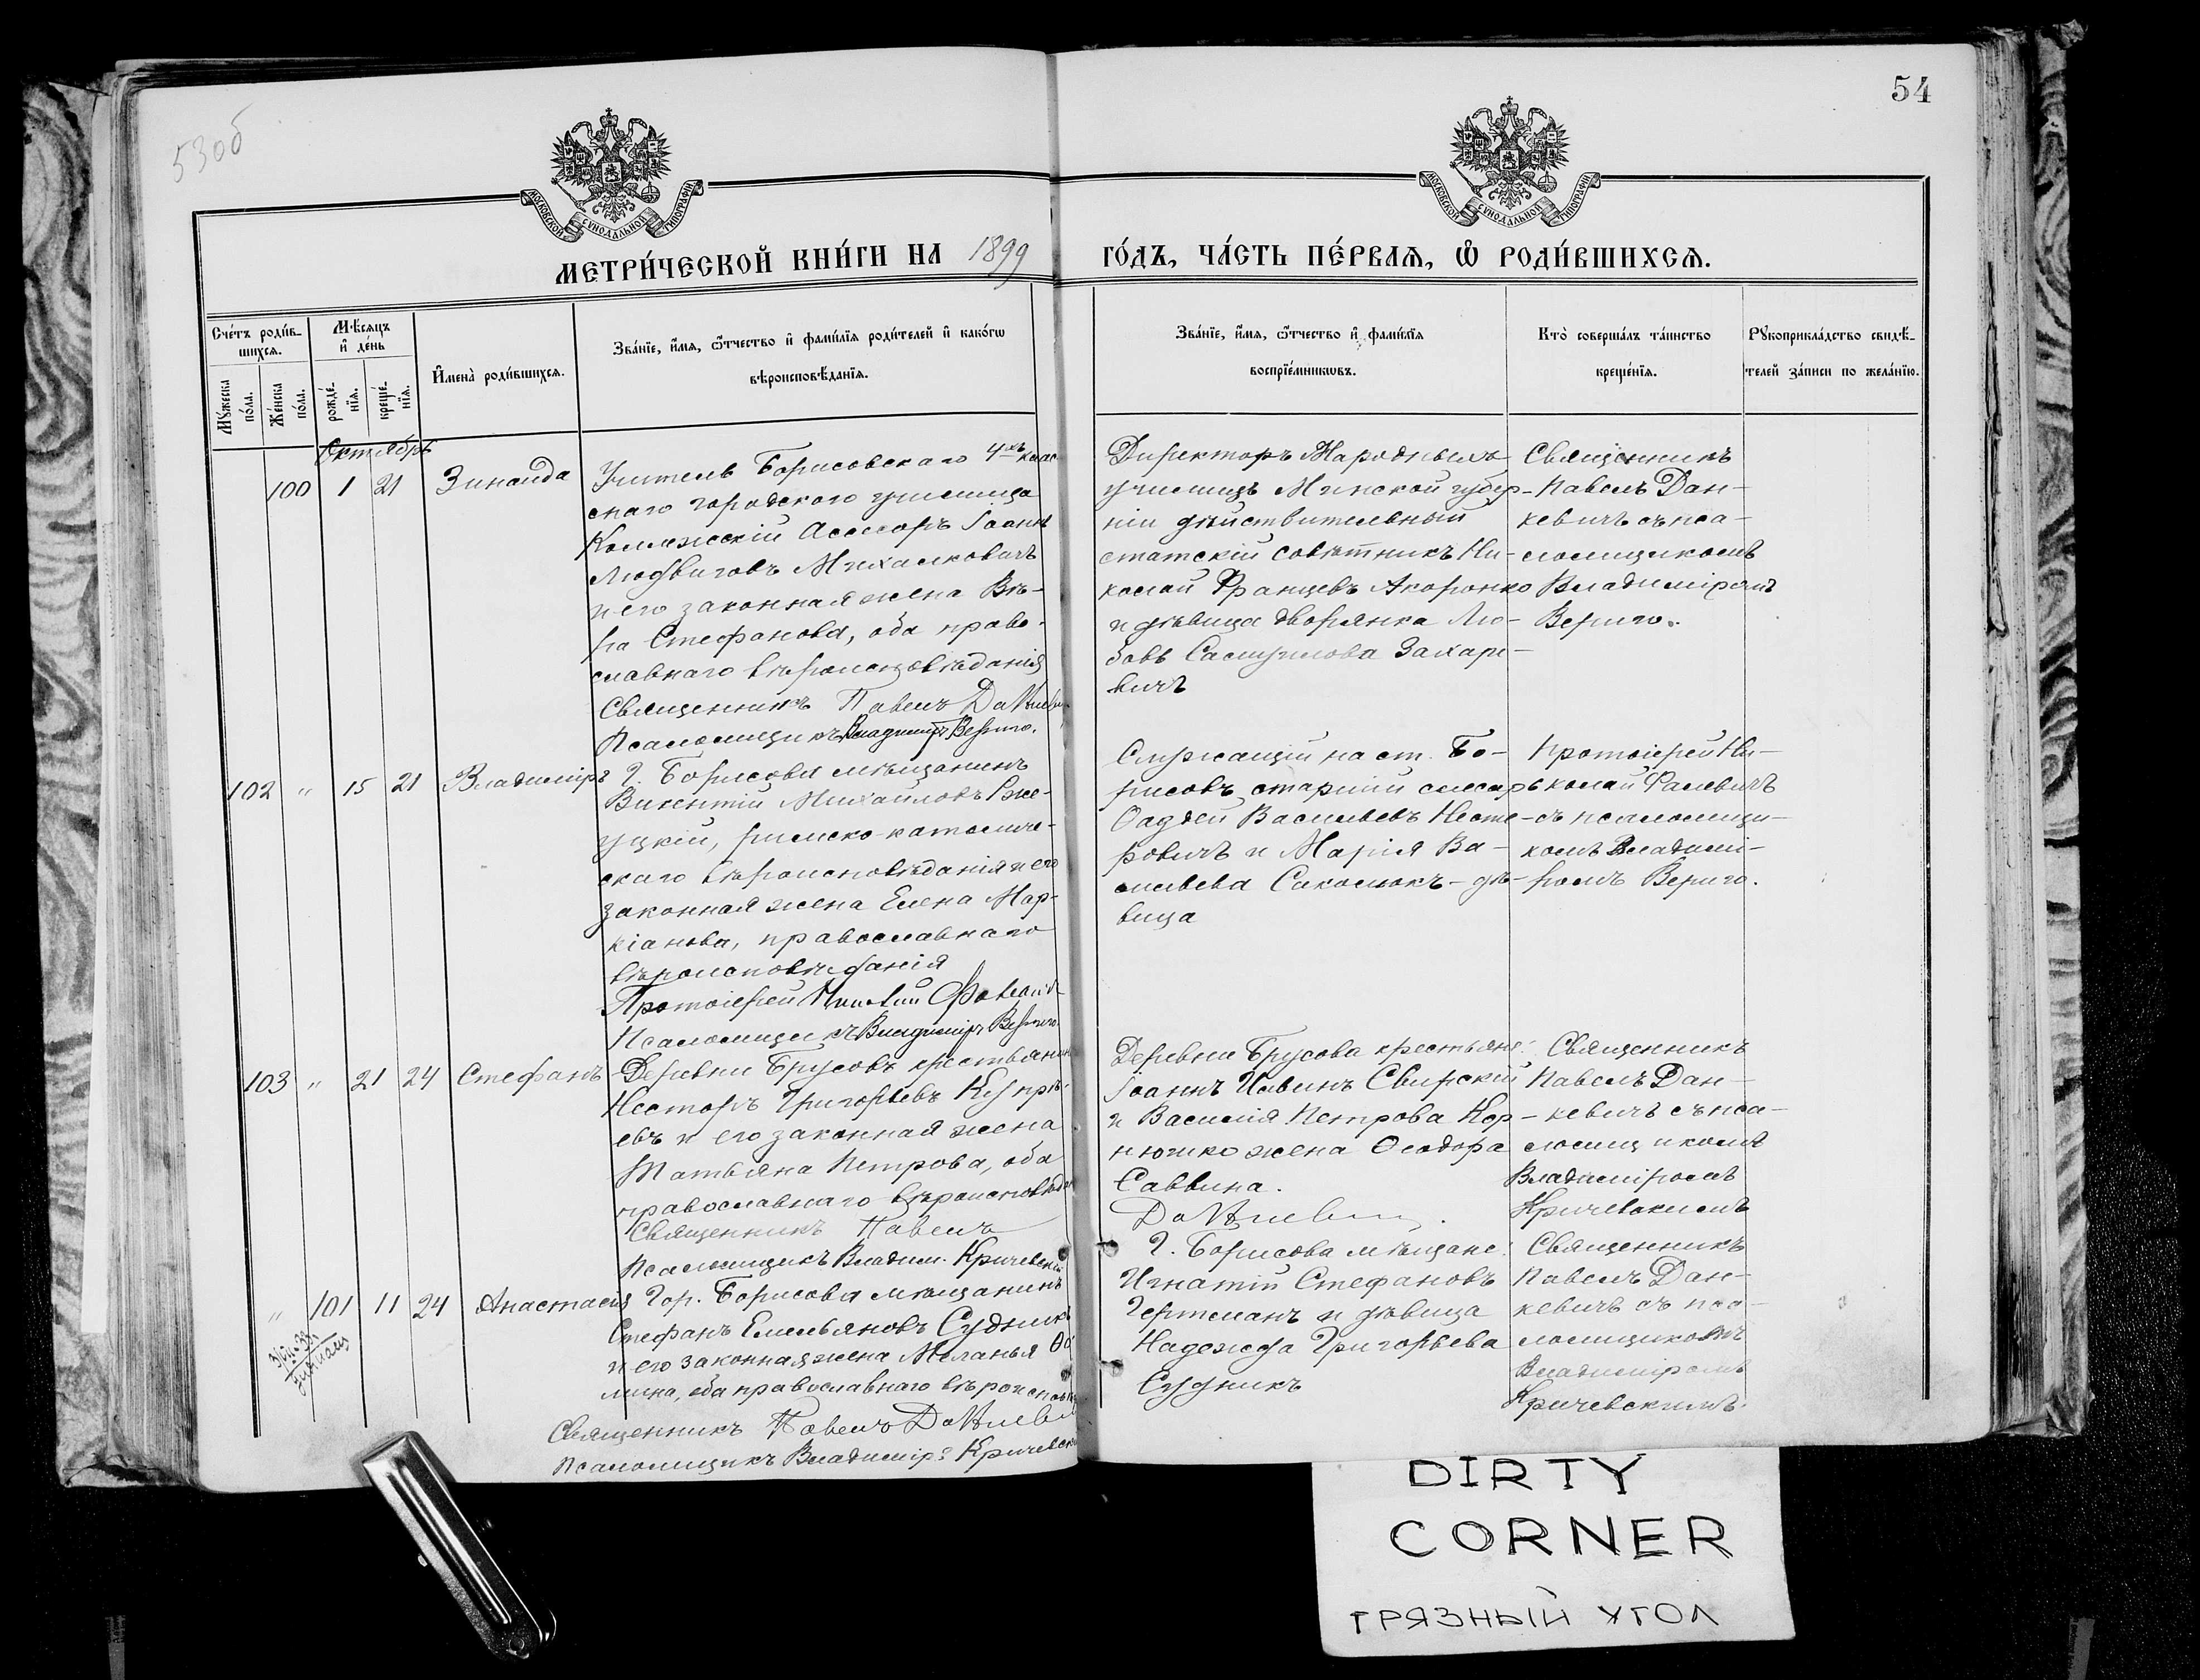 53об
54
МОСКОВСКОЙ СУНОДАЛЬНОЙ ТИПОГРАФІИ
МОСКОВСКОЙ СУНОДАЛЬНОЙ ТИПОГРАФІИ
МЕТРИ́ЧЕСКОЙ КНИ́ГИ НА 1899 ГО́ДЪ, ЧА́СТЬ ПЕ́РВАѦ, Ѡ РОДИ́ВШИХСѦ.
Сче́тъ роди́в-
шихсѧ.
Мꙋ́жеска
по́ла.
Же́нска
по́ла.
Мѣ́сѧцъ
и҆ де́нь
рожде́-
нїѧ.
креще́-
нїѧ.
И҆мена̀ роди́вшихсѧ.
Зва́нїе, и҆́мѧ, ѻ҆́тчество и҆ фами́лїѧ роди́телей и҆ како́гѡ
вѣроисповѣ́данїѧ.
Зва́нїе, и҆́мѧ, ѻ҆́тчество и҆ фами́лїѧ
воспрїе́мникѡвъ.
Кто̀ соверша́лъ та́инство
креще́нїѧ.
Рꙋкоприкла́дство свидѣ́-
телей за́писи по жела́нїю.
Октябрь
100 1 21 Зинаида
Учитель Борисовскаго 4хъ клас-
снаго городского училища
Коллежскій Ассесоръ Іоаннъ
Людвиговъ Михалковичъ
и его законная жена Вѣ-
ра Стефанова, оба право-
славнаго вѣроисповѣданія
Священникъ Павелъ Данкевич
Псаломщикъ Владиміръ Вериго.
Директоръ Народныхъ
училищъ Минской губер-
ніи дѣйствительный
статскій совѣтникъ Ни-
колай Францевъ Акоронко
и дѣвица дворянка Лю-
бовь Самуилова Захаре-
вичъ
Священникъ
Павелъ Дан-
кевичъ съ пса-
ломщикомъ
Владиміромъ
Вериго.
102 " 15 21 Владиміръ
Г. Борисова мѣщанинъ
Викентій Михайловъ Рже-
уцкій, римско-католиче-
скаго вѣроисповѣданія и его
законная жена Елена Мар-
кіанова, православнаго
вѣроисповѣданія
Протоіерей Николай
Псаломщикъ Владиміръ Вериго
Служащій на ст. Бо-
рисовъ, старшій слесарь
Ѳаддей Васильевъ Несте-
ровичъ и Марія Ва-
сильева Саколюкъ - дѣ-
вица
Протоіерей Ни-
колай Фалевичъ
съ псаломщи-
комъ Владимі-
ромъ Вериго.
103 " 21 24 Стефанъ
Деревни Брусовъ крестьянинъ
Несторъ Григорьевъ Купрѣ-
евъ и его законная жена
Татьяна Петрова, оба
православнаго вѣроисповѣдан
Священникъ Павелъ
Псаломщикъ Владим. Кричевскій
Деревни Брусова крестьяне:
Іоаннъ Іавинъ Свирскій
и Василія Петрова Кор-
нюшко жена Ѳеодора
Саввина.
Данкевич.
Священникъ
Павелъ Дан-
кевичъ съ пса-
ломщикомъ
Владиміромъ
Кричевскимъ
" 101 11 24 Анастасія
Гор. Борисова мѣщанинъ
Стефанъ Емельяновъ Судникъ
и его законная жена Меланья Ѳо
мина, оба православнаго вѣроисповѣд
Священникъ Павелъ Данкевич
Псаломщикъ Владиміръ Кричевскій
Г. Борисова мѣщане:
Игнатій Стефановъ
Гертманъ и дѣвица
Надежда Григорьева
Судникъ
Священникъ
Павелъ Дан-
кевичъ съ пса-
ломщикомъ
Владиміромъ
Кричевскимъ.
DIRTY
CORNER
ГРЯЗНЫЙ УГОЛ